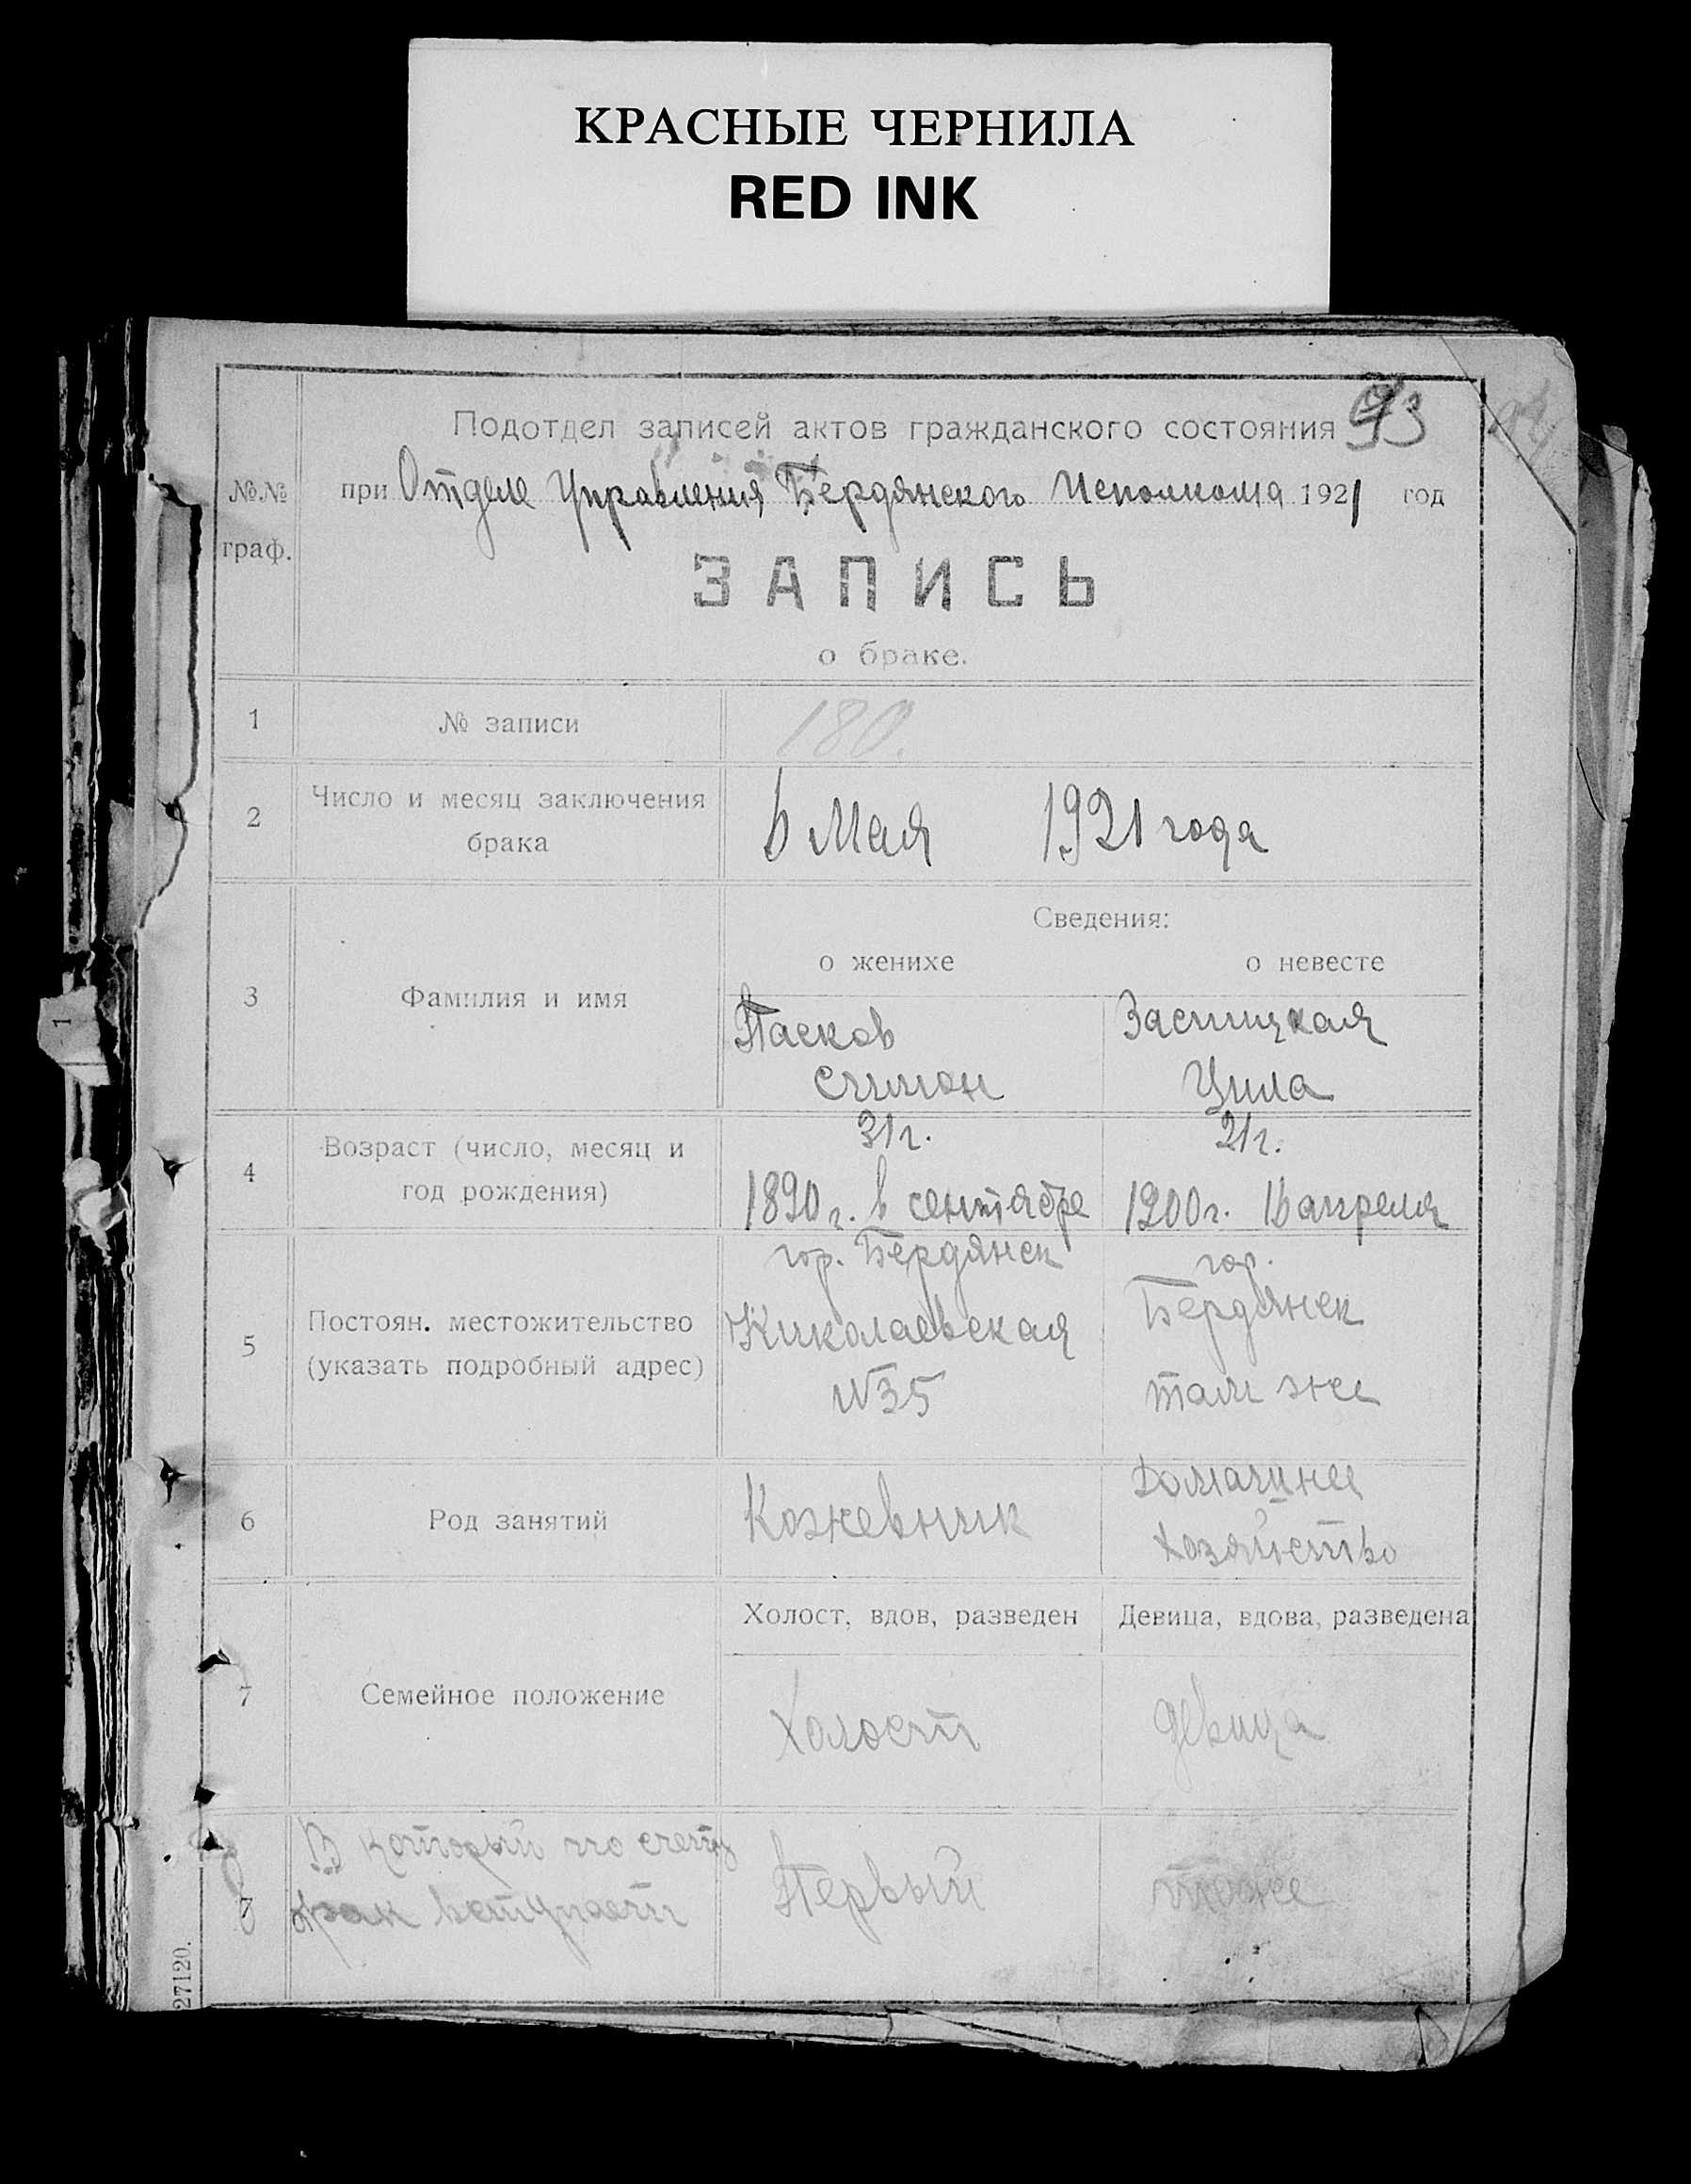 КРАСНЫЕ ЧЕРНИЛА
RED INK
Подотдел записей актов гражданского состояния 93
№№ граф.
при Отделе Управления Бердянского Исполкома 1921 год
ЗАПИСЬ
о браке.
1 № записи 180.
2 Число и месяц заключения брака 6 Мая 1921 года
Сведения:
о женихе о невесте
3 Фамилия и имя
Пасков
Симон
Засицкая
Цила
4 Возраст (число, месяц и год рождения)
31 г.
1890 г. в сентябре
21 г.
1900 г. 16 апреля
5 Постоян. местожительство
(указать подробный адрес)
гор. Бердянск
Николаевская
№35
гор.
Бердянск
там же
6 Род занятий
Кожевник
Домашнее
хозяйство
Холост, вдов, разведен Девица, вдова, разведена
7 Семейное положение
Холост
девица
8 В который по счету
брак вступает
Первый
тоже
27120.
1